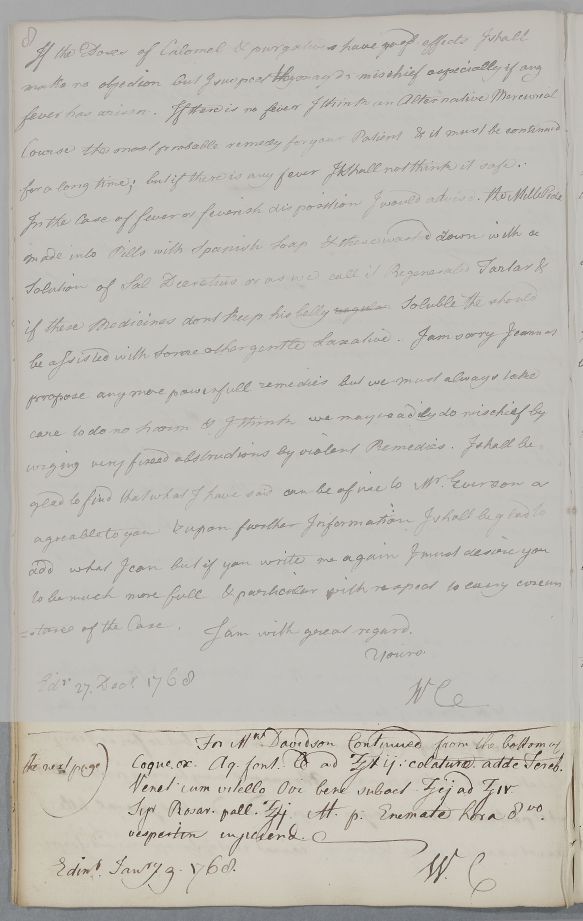 8
If the Doses of Calomel & purgatives have good effects I shall
make no objection but I suspect they may do mischief especially if any
fever has arisen. If there is no fever I think an Alternative Mercurial
Course the most probable remedy for your Patient & it must be continued
for a long time; but if there is any fever I shall not think it safe.
In the Case of fever or feverish disposition I would advise the Millepede
made into Pills with Spanish Soap & these washed down with a
Solution of Sal Diureticus or as we call it Regenerated Tartar &
if these Medicines dont keep his belly regular Soluble the should
be assisted with some other gentle Laxative. I am sorry I cannot
propose any more powerfull remedies but we must always take
care to do no harm & I think we may readily do mischief by
urging very fixed obstructions by violent Remedies. I shall be
glad to find that what I have said can be of use to Mr. Everson &
agreeable to you & upon further Information I shall be glad to
add what I can but if you write me again I must desire you
to be much more full & particular with respect to every circum
=stance of the Case. I am with great regard.
Yours
Edr. 27. Decr. 1768 W C
For Mrs. Davidson Continued from the bottom of
the next page) Coque ex Aq. font. ad ℥xij: colaturæ adde Tereb.
Venet: cum vitello Ovi bene subact. ʒij ad ʒiv
Syr. Rosar. pall. ℥j. M. p. Enemate hora 8vo.
vespertin injiciend.
Edinr. Janry 3. 1768. W. C